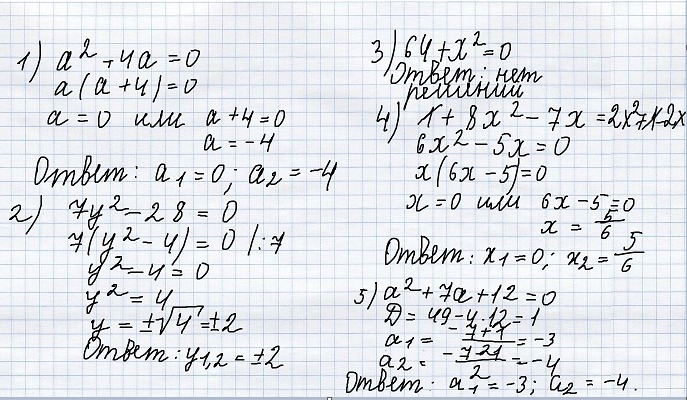 1) a² + 4a = 0
a(a+4) = 0
a = 0 или a+4=0
a = -4
Ответ: a₁=0; a₂ = -4
2) 7y² - 28 = 0
7(y² - 4) = 0 |:7
y² - 4 = 0
y² = 4
y = ±√4 = ±2
Ответ: y₁,₂ = ±2
3) 64 + x² = 0
Ответ: нет
решений
4) 1 + 8x² - 7x = 2x² + 1 - 2x
6x² - 5x = 0
x(6x - 5) = 0
x = 0 или 6x - 5 = 0
x = 5/6
Ответ: x₁ = 0; x₂ = 5/6
5) a² + 7a + 12 = 0
D = 49 - 4·12 = 1
= -3
= -4
Ответ: a₁ = -3; a₂ = -4.